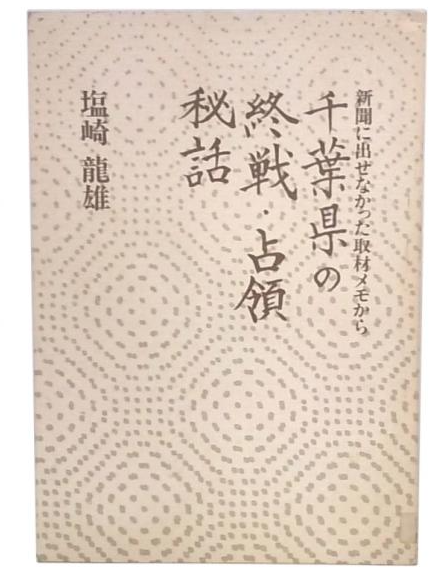 新聞に出せなかった取材メモから
千葉県の
終戦・占領
秘話
塩崎 龍雄